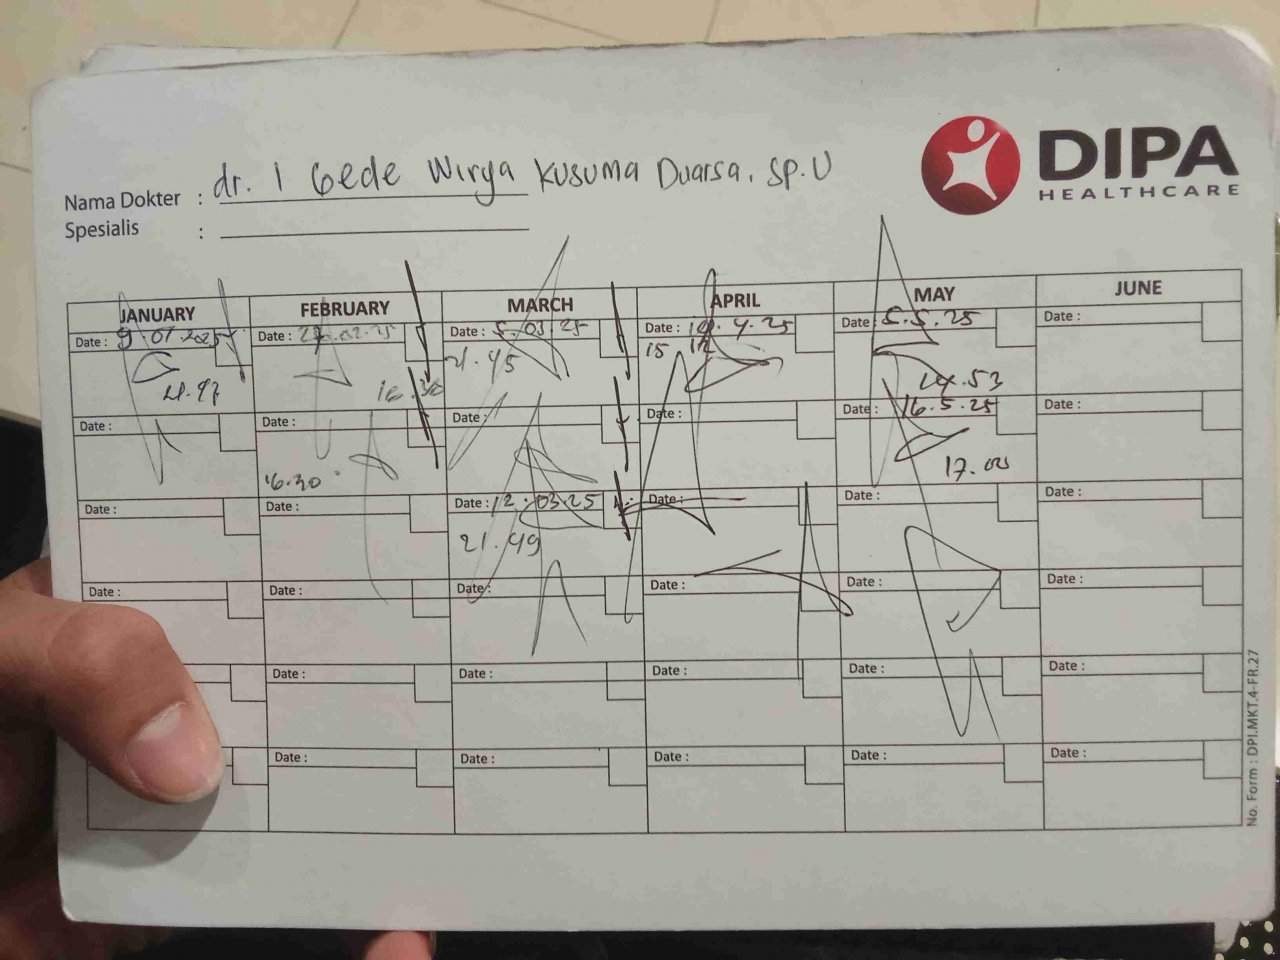 DIPA
HEALTHCARE
Nama Dokter : dr. I Gede Wirya Kusuma Duarsa, Sp.U
Spesialis :
JANUARY FEBRUARY MARCH APRIL MAY JUNE
Date : 9.01.2025 Date : .02.25 Date : 5.03.25 Date : .4.25 Date : 5.5.25 Date :
21.45 15 12
16.30 14.53
Date : Date : Date : Date : Date : 16.5.25 Date :
16.30 17.00
Date : Date : Date : 12.03.25 Date : Date : Date :
21.49
Date : Date : Date : Date : Date : Date :
Date : Date : Date : Date : Date :
Date : Date : Date : Date : Date :
No. Form : DPI.MKT.4-FR.27